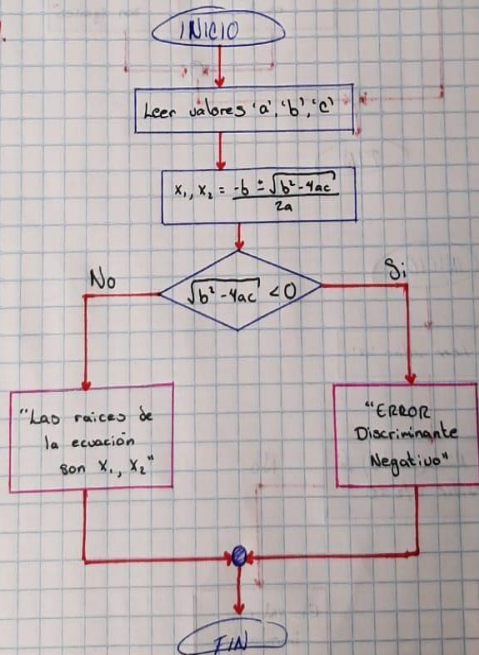 INICIO
Leer valores 'a', 'b', 'c'
x₁, x₂ = -b ± √b² - 4ac / 2a
√b² - 4ac < 0
No
Si
"Las raices de
la ecuación
son x₁, x₂"
"ERROR
Discriminante
Negativo"
FIN